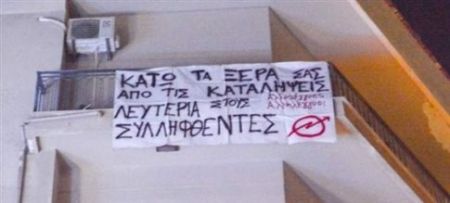 ΚΑΤΩ ΤΑ ΞΕΡΑ ΣΑΣ
ΑΠΟ ΤΙΣ ΚΑΤΑΛΗΨΕΙΣ
ΛΕΥΤΕΡΙΑ ΣΤΟΥΣ
ΣΥΛΛΗΦΘΕΝΤΕΣ
Αλληλέγγυες
Αλληλέγγυοι